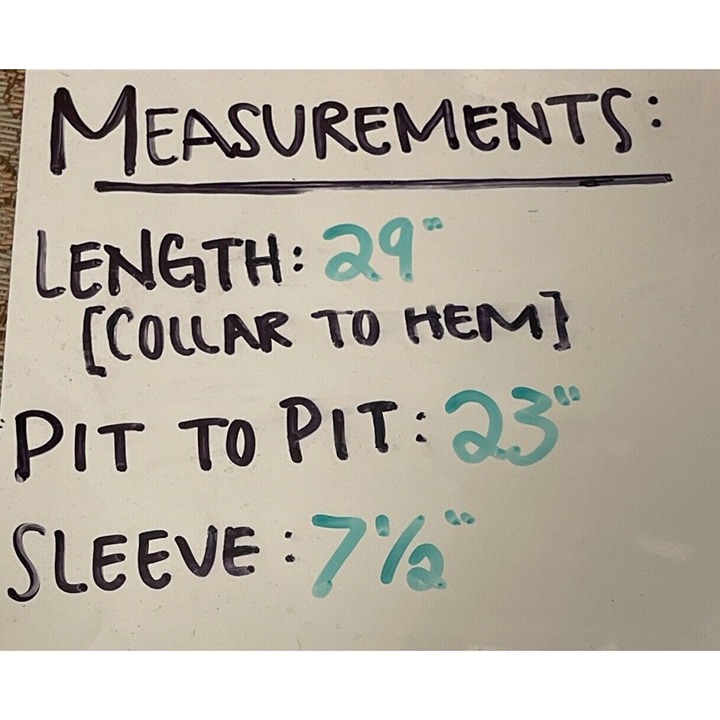 MEASUREMENTS:
LENGTH: 29"
[COLLAR TO HEM]
PIT TO PIT: 23"
SLEEVE: 7 1/2"